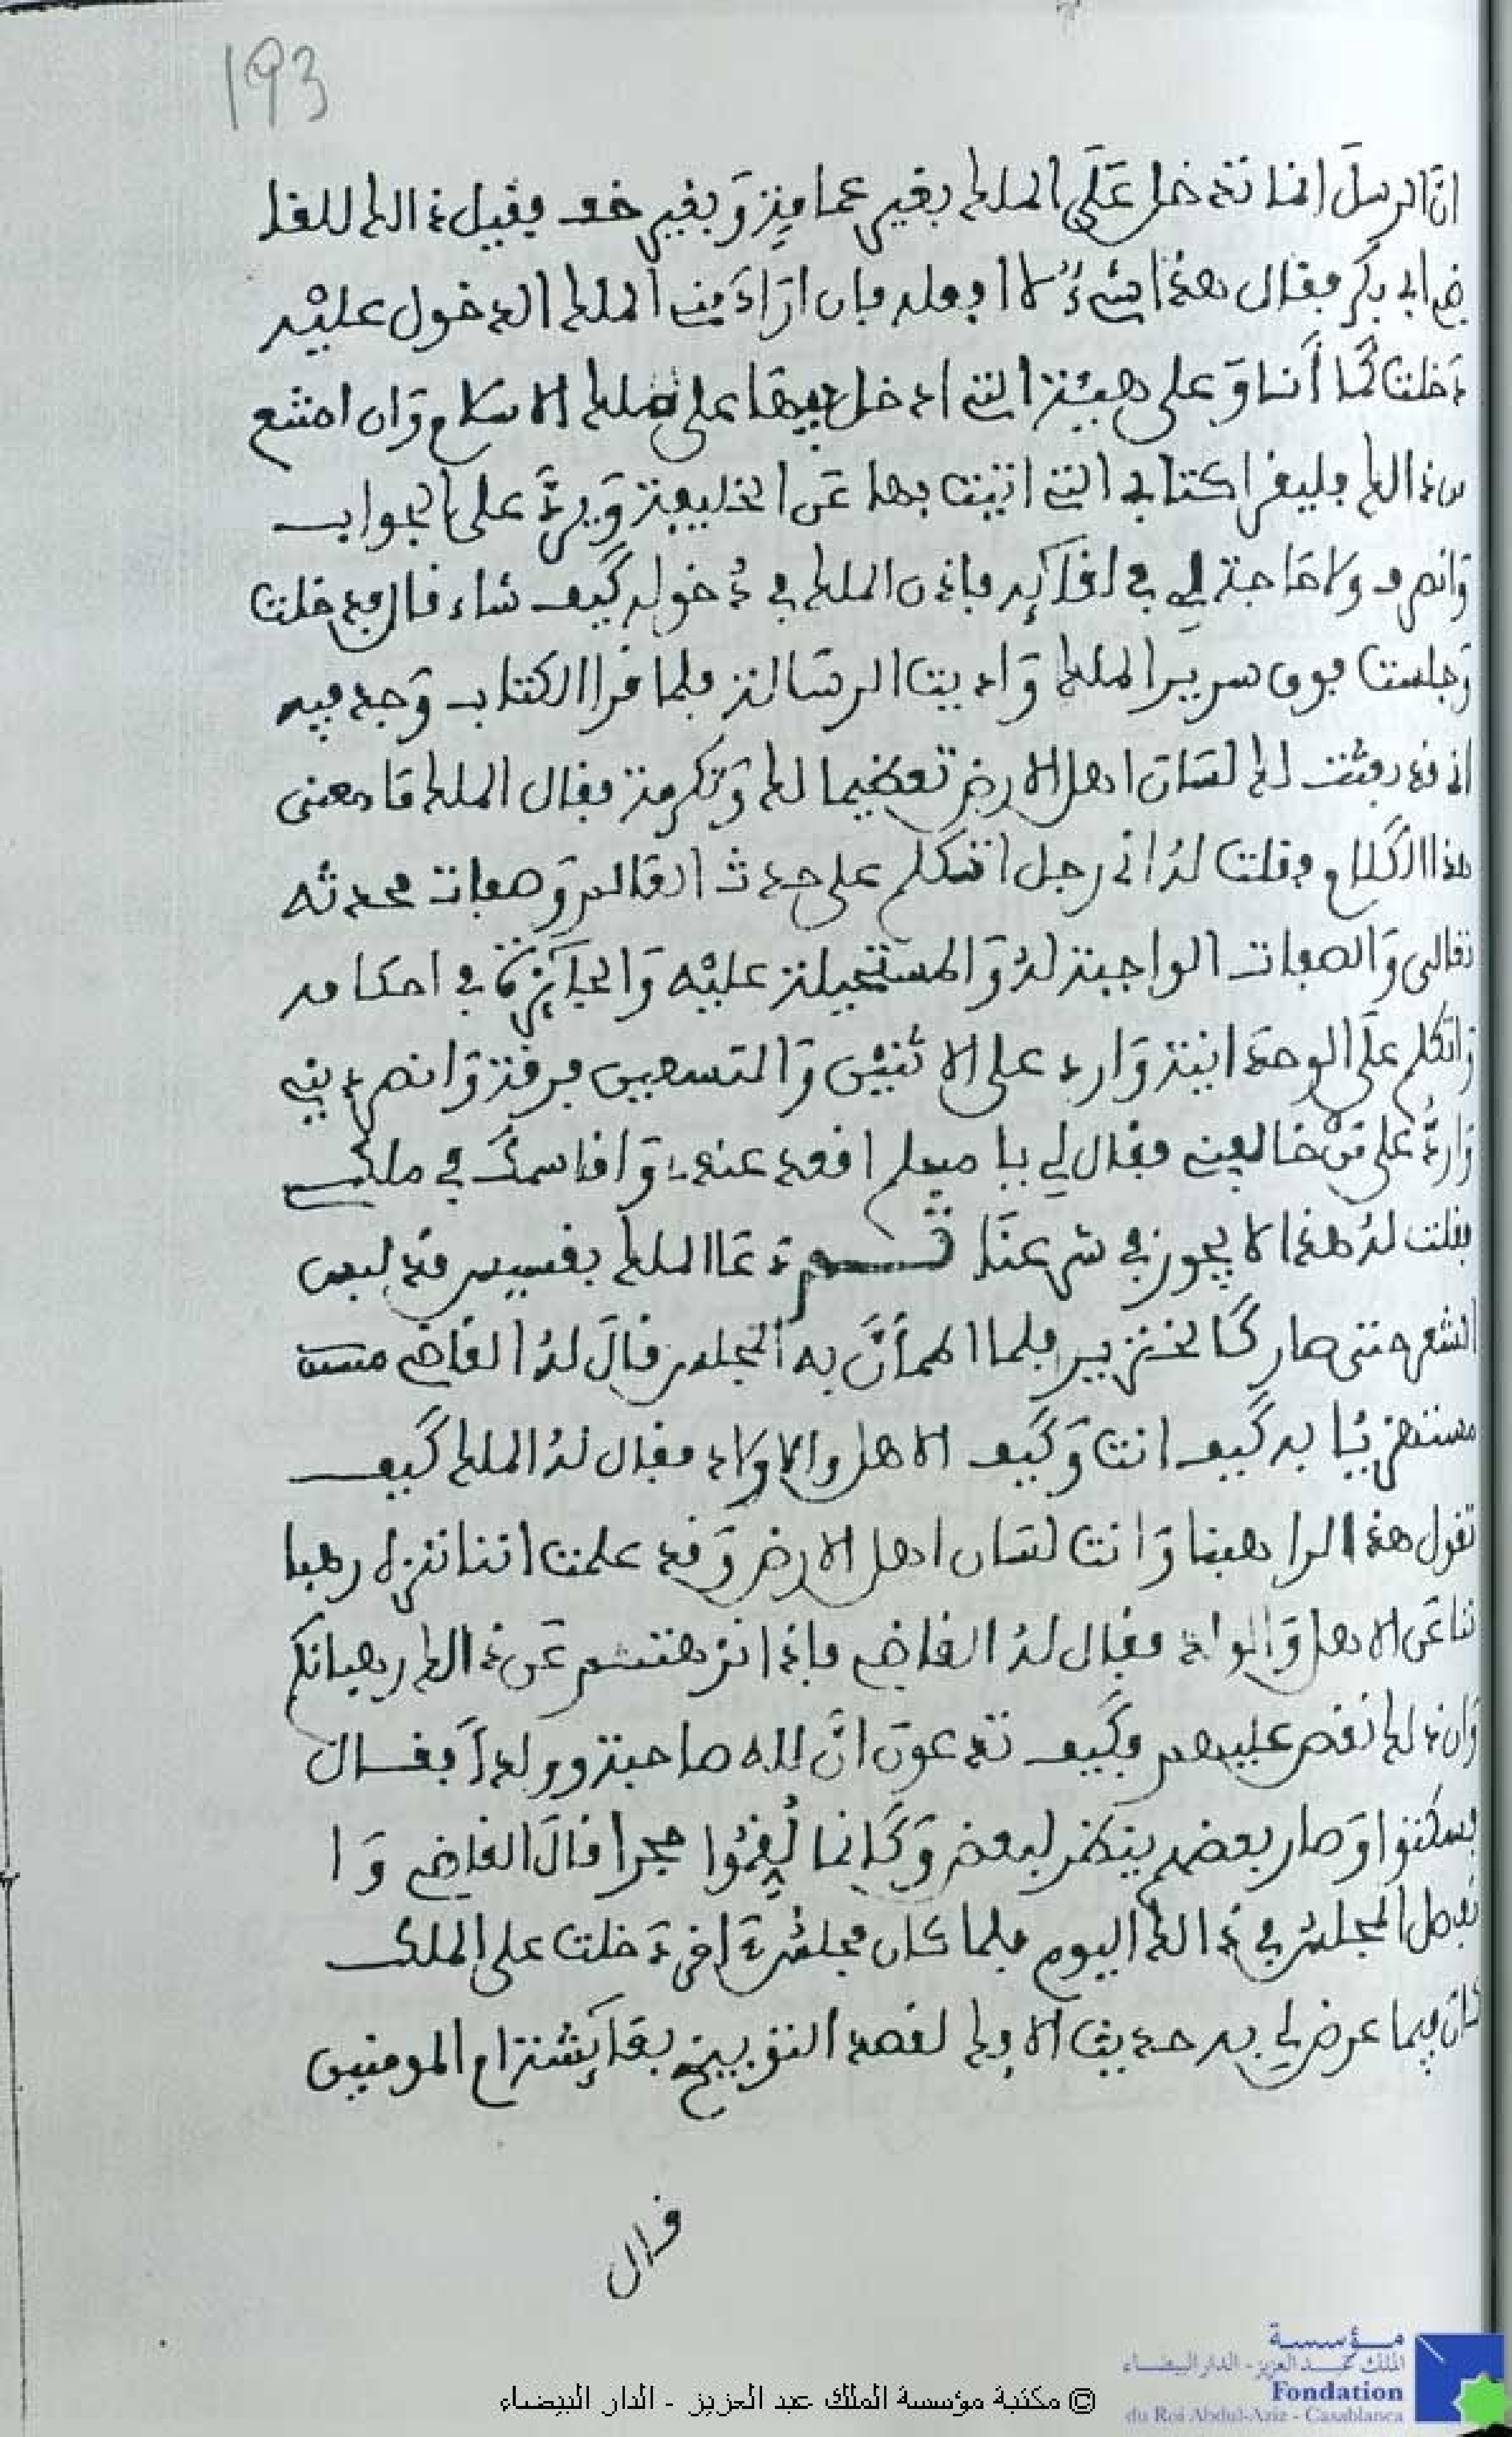 193
ان الرسل انما تدخل على الملك بغير عمامة وبغير خف فقيل ذالك للقا
ضي ابي بكر فقال هذا شيء لا افعله فان اراد مني الملك الدخول عليه
دخلت كما أنا وعلى هيئة التي ادخل بيها على ملك الاسلام وان امتنع
من ذالك فليقرا كتابي التي اتيت بها عن الخليفة ويرد علي الجواب
وانصرف ولا حاجة لي في لقآئه فاذن الملك في دخوله كيف شاء قال فدخلت
وجلست فوق سرير الملك واديت الرسالة فلما قرا الكتاب وجد فيه
اني قد بعثت لك لسان اهل الارض تعظيما لك وتكرمة فقال الملك ما معنى
هذا الكلام فقلت له اني رجل اتكلم على حدث العالم وصفات محدثه
تعالى والصفات الواجبة له والمستحيلة عليه والجآئزة في احكامه
واتكلم على الوحدانية وارد على الاثنين والتسعين فرقة وانصر ديني
وارد على من خالفني فقال لي بل مقيم اقعد عندي وافاسمك في ملكي
فقلت له هذا لا يجوز في شرعنا ثم دعا الملك بقسيس قد لبس
الشعر حتى صار كالخنزير فلما اطمأن به المجلس قال له القاضي
مستهزئا به كيف انت وكيف الاهل والاولاد فقال له الملك كيف
تقول هذا لراهبنا وانت لسان اهل الارض وقد علمت اننا ننزه رهبا
ننا عن الاهل والولد فقال له القاضي فاذا نزهتم عن ذالك رهبانكم
وان ذلك نقص عليهم فكيف تدعون ان لله صاحبة وولدا فقال
فسكتوا وصار بعضهم ينظر لبعض وكانما لقموا حجرا قال القاضي وا
نفصل المجلس في ذالك اليوم فلما كان مجلس ءاخر دخلت على الملك
كان فيما عرض لي به حديث الافك لقصد التوبيخ بعآئشة ام المومنين
قال
مؤسسة
الملك عبد العزيز - الدار البيضاء
Fondation
du Roi Abdul-Aziz - Casablanca
© مكتبة مؤسسة الملك عبد العزيز - الدار البيضاء